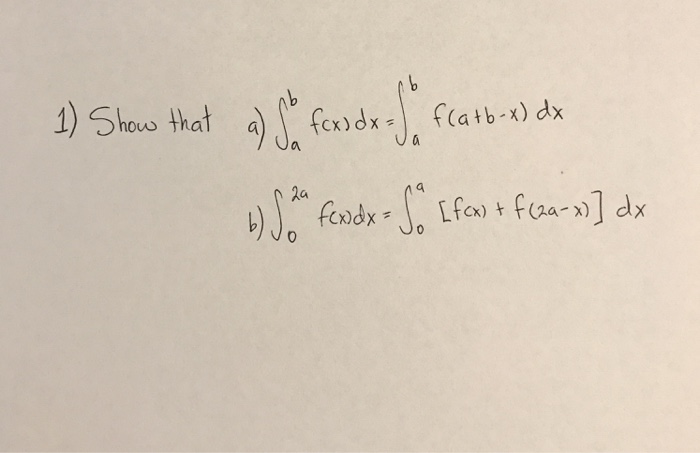 1) Show that a) ∫_a^b f(x) dx = ∫_a^b f(a+b-x) dx
b) ∫_0^{2a} f(x) dx = ∫_0^a [f(x) + f(2a-x)] dx